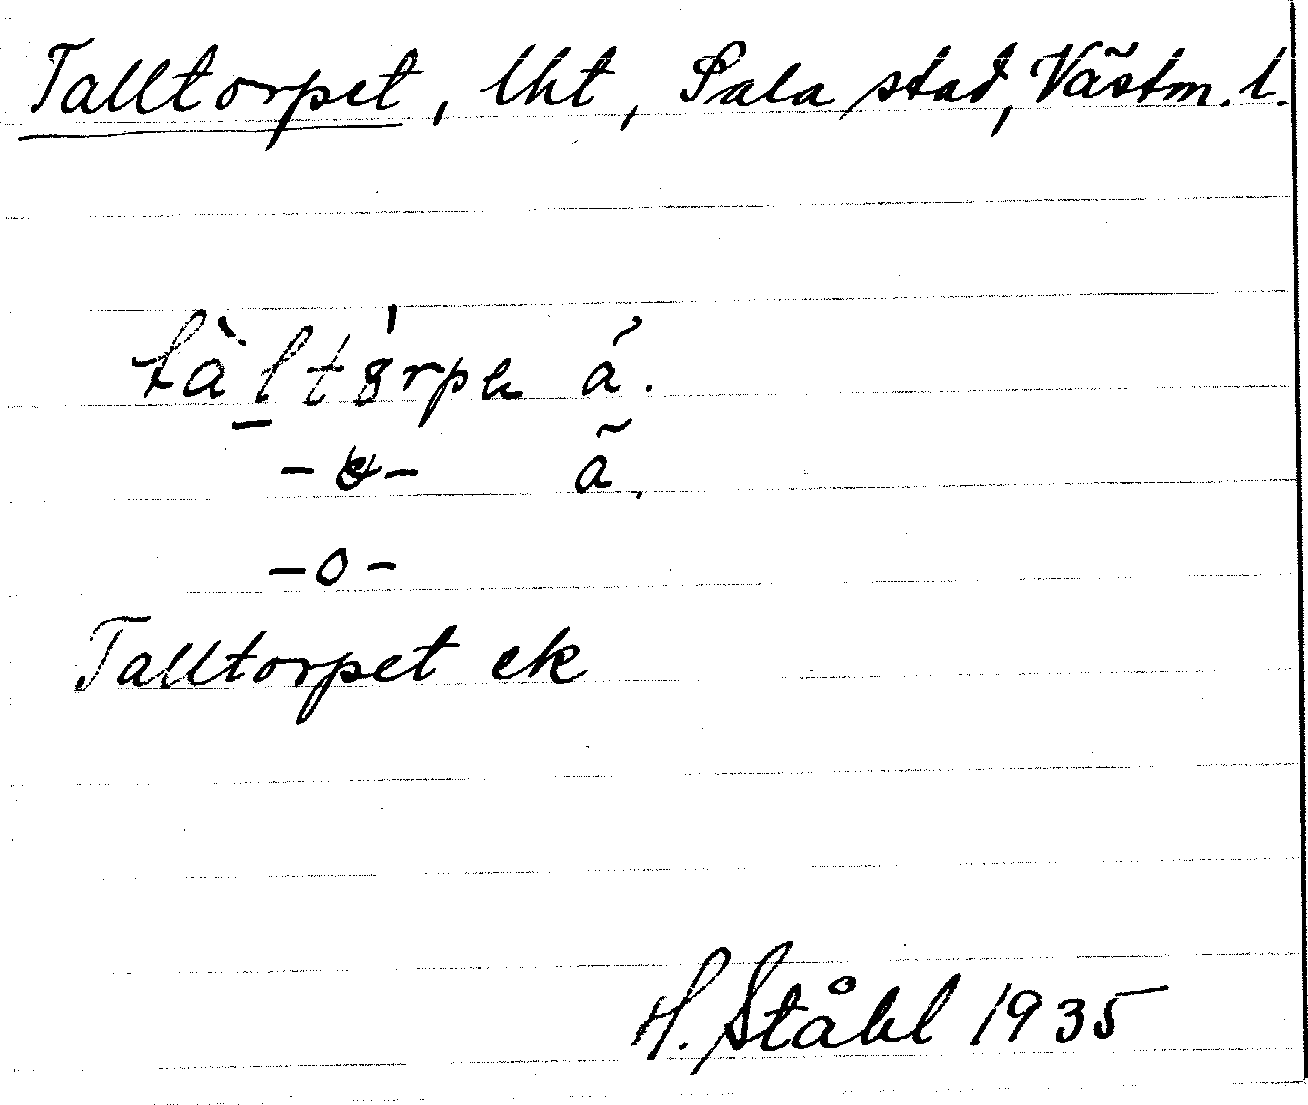 Talltorpet, lht, Sala stad, Västm. l.
tàl̠tȣ́rpe á.
-ȣ- ã.
-o-
Talltorpet ek
H. Ståhl 1935